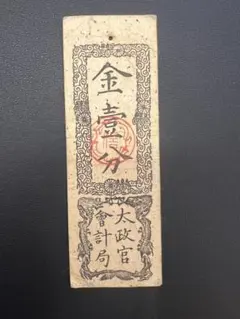 金壹分
太政官
會計局